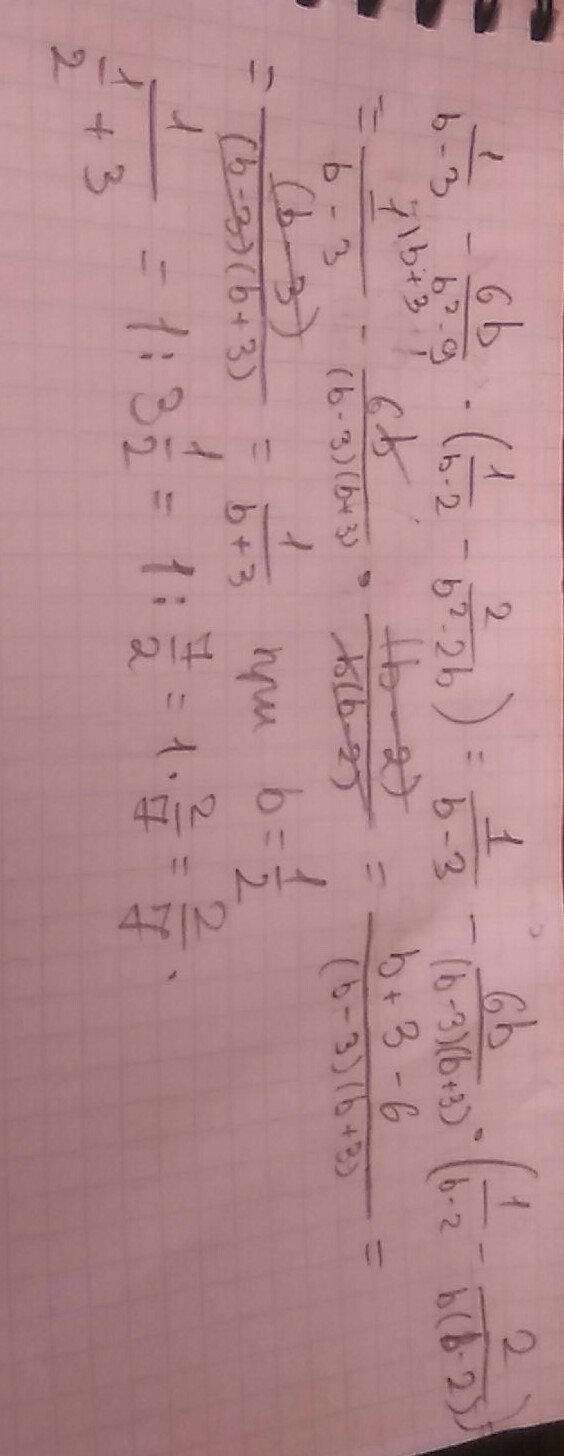 1/(b-3) - 6b/(b²-9) · (1/(b-2) - 2/(b²-2b)) = 1/(b-3) - 6b/((b-3)(b+3)) · (1/(b-2) - 2/(b(b-2))) =
= 1/(b-3) - 6b/((b-3)(b+3)) · (b-2)/(b(b-2)) = (b+3-6)/((b-3)(b+3)) =
= (b-3)/((b-3)(b+3)) = 1/(b+3) при b = 1/2
1/(1/2 + 3) = 1 : 3 1/2 = 1 : 7/2 = 1 · 2/7 = 2/7.